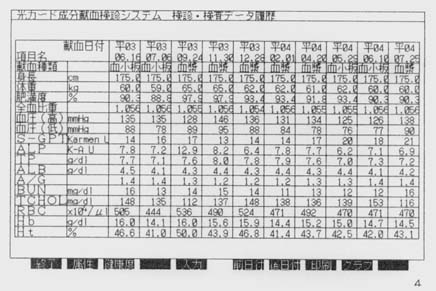 光カード成分献血検診システム 検診・検査データ履歴
献血日付 平03 平03 平03 平03 平03 平04 平04 平04 平04 平04
項目名 06.16 07.06 09.24 11.30 12.28 02.01 04.20 05.29 06.10 07.25
献血種類 血小板 血小板 血漿 血小板 血漿 血漿 血漿 血小板 血小板 血漿
身長 cm 175.0 175.0 175.0 175.0 175.0 175.0 175.0 175.0 175.0 175.0
体重 kg 60.0 59.0 65.0 65.0 62.0 62.0 61.0 62.0 60.0 60.0
肥満度 % 90.3 88.8 97.9 97.9 93.4 93.4 91.8 93.4 90.3 90.3
全血比重
血圧(高) mmHg 135 135 128 146 136 131 134 125 126 138
血圧(低) mmHg 88 78 89 95 88 84 78 76 77 90
S-GPT Karmen U 14 16 17 13 14 14 17 20 18 21
ALP K-A U 7.8 7.2 12.9 8.2 6.4 7.8 7.7 6.2 7.1 6.9
TP g/dl 7.7 7.1 7.6 8.0 7.8 7.9 7.6 7.0 7.3 7.2
ALB g/dl 4.5 4.1 4.3 4.4 4.3 4.4 4.3 4.0 4.1 4.2
A/G 1.4 1.4 1.3 1.2 1.2 1.2 1.3 1.3 1.4 1.4
BUN mg/dl 16 13 14 15 14 11 13 12 12 16
TCHOL mg/dl 148 135 112 137 148 138 136 139 153 116
RBC x10⁴/μl 505 444 536 490 524 471 492 470 471 470
Hb g/dl 16.0 14.1 16.0 15.6 15.9 14.4 15.2 15.0 14.7 14.5
Ht % 46.6 41.0 50.0 43.9 46.8 41.4 43.7 42.5 42.0 43.1
終了 属性 健康歴 入力 前日付 後日付 印刷 グラフ
4